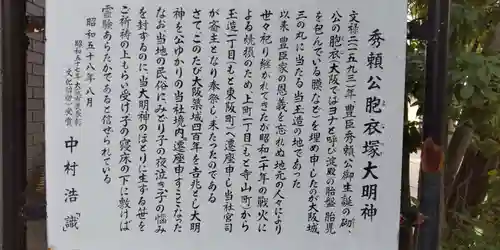 秀頼公胞衣塚大明神
文禄二(一五九三)年豊臣秀頼公御生誕の砌、
公の胞衣(大阪ではヨナと呼び、淀殿の胎盤 胎児
を包んでいる膜など)を埋め申したのが大阪城
三の丸に当たる当玉造の地であった
以来、豊臣家の恩義を忘れぬ地元の人々により
世々祀り継がれてきたが昭和二十年の戦火に
玉造二丁目(もと東阪町)へ遷座申し当社宮司
が斎主となり奉祭し来たったのである
さて、このたび大阪築城四百年を吉兆として大明
神を公ゆかりの当社境内へ遷座申すこととなった
なお当地の民俗にみどり子の夜泣き子の悩み
を封ずるのに、当大明神のほとりに生ずる笹を
ご祈祷の上もらい受け子の寝床の下に敷けば
霊験あらたかであると信ぜられている
昭和五十八年八月
昭和五十七年大阪市表彰
文化功績・受賞
中村 浩 識